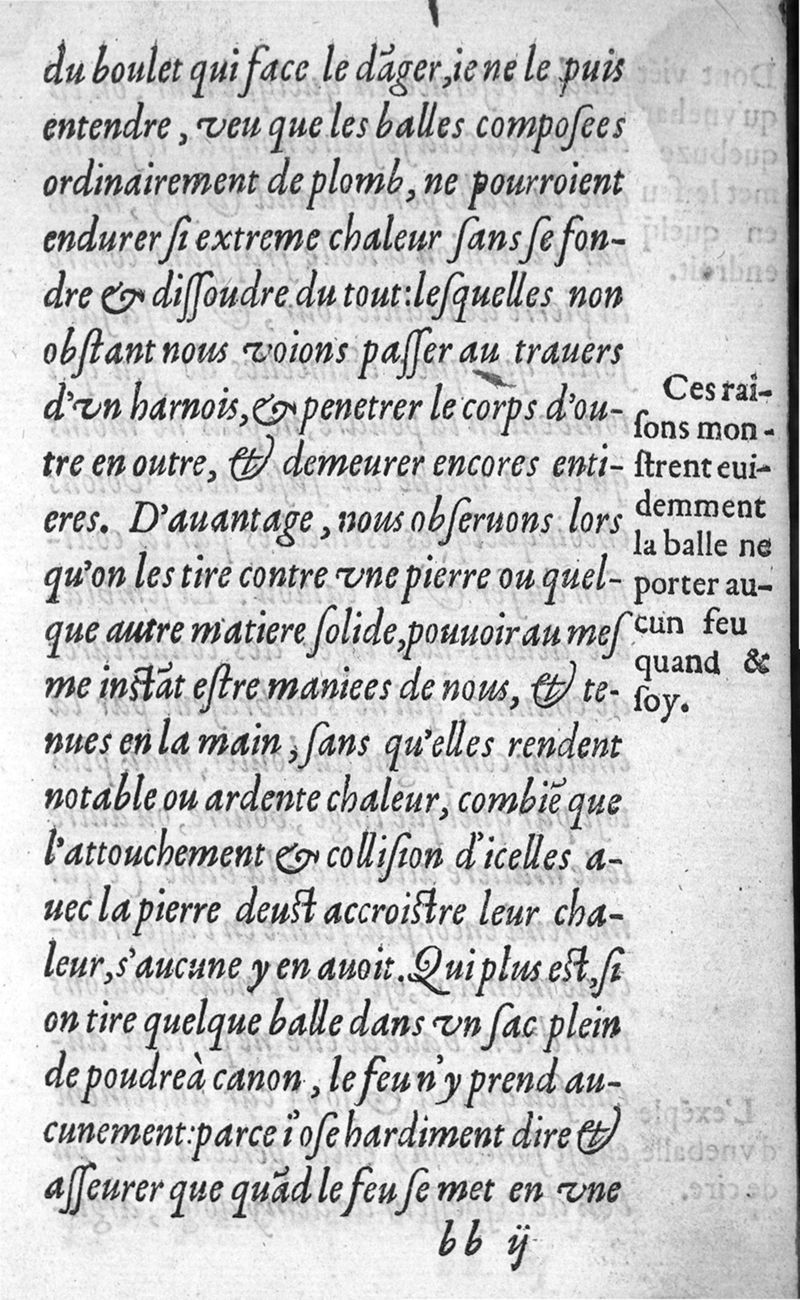 du boulet qui face le dãger, ie ne le puis
entendre, veu que les balles compoſees
ordinairement de plomb, ne pourroient
endurer ſi extreme chaleur ſans ſe fon-
dre & diſſoudre du tout: leſquelles non
obſtant nous voions paſſer au trauers
d'vn harnois, & penetrer le corps d'ou-
tre en outre, & demeurer encores enti-
eres. D'auantage, nous obſeruons lors
qu'on les tire contre vne pierre ou quel-
que autre matiere ſolide, pouuoir au meſ
me inſtãt eſtre maniees de nous, & te-
nues en la main, ſans qu'elles rendent
notable ou ardente chaleur, combiẽ que
l'attouchement & colliſion d'icelles a-
uec la pierre deuſt accroiſtre leur cha-
leur, s'aucune y en auoit. Qui plus eſt, ſi
on tire quelque balle dans vn ſac plein
de poudre à canon, le feu n'y prend au-
cunement: parce i'oſe hardiment dire &
aſſeurer que quãd le feu ſe met en vne
bb ij
Ces rai-
ſons mon-
ſtrent eui-
demment
la balle ne
porter au-
cun feu
quand &
ſoy.